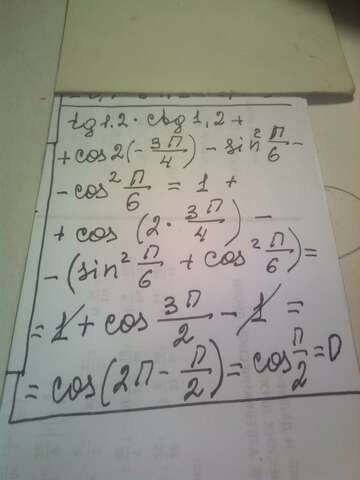 tg 1.2 · ctg 1,2 +
+ cos 2(-3π/4) - sin² π/6 -
- cos² π/6 = 1 +
+ cos (2 · 3π/4) -
- (sin² π/6 + cos² π/6) =
= 1 + cos 3π/2 - 1 =
= cos(2π - π/2) = cos π/2 = 0